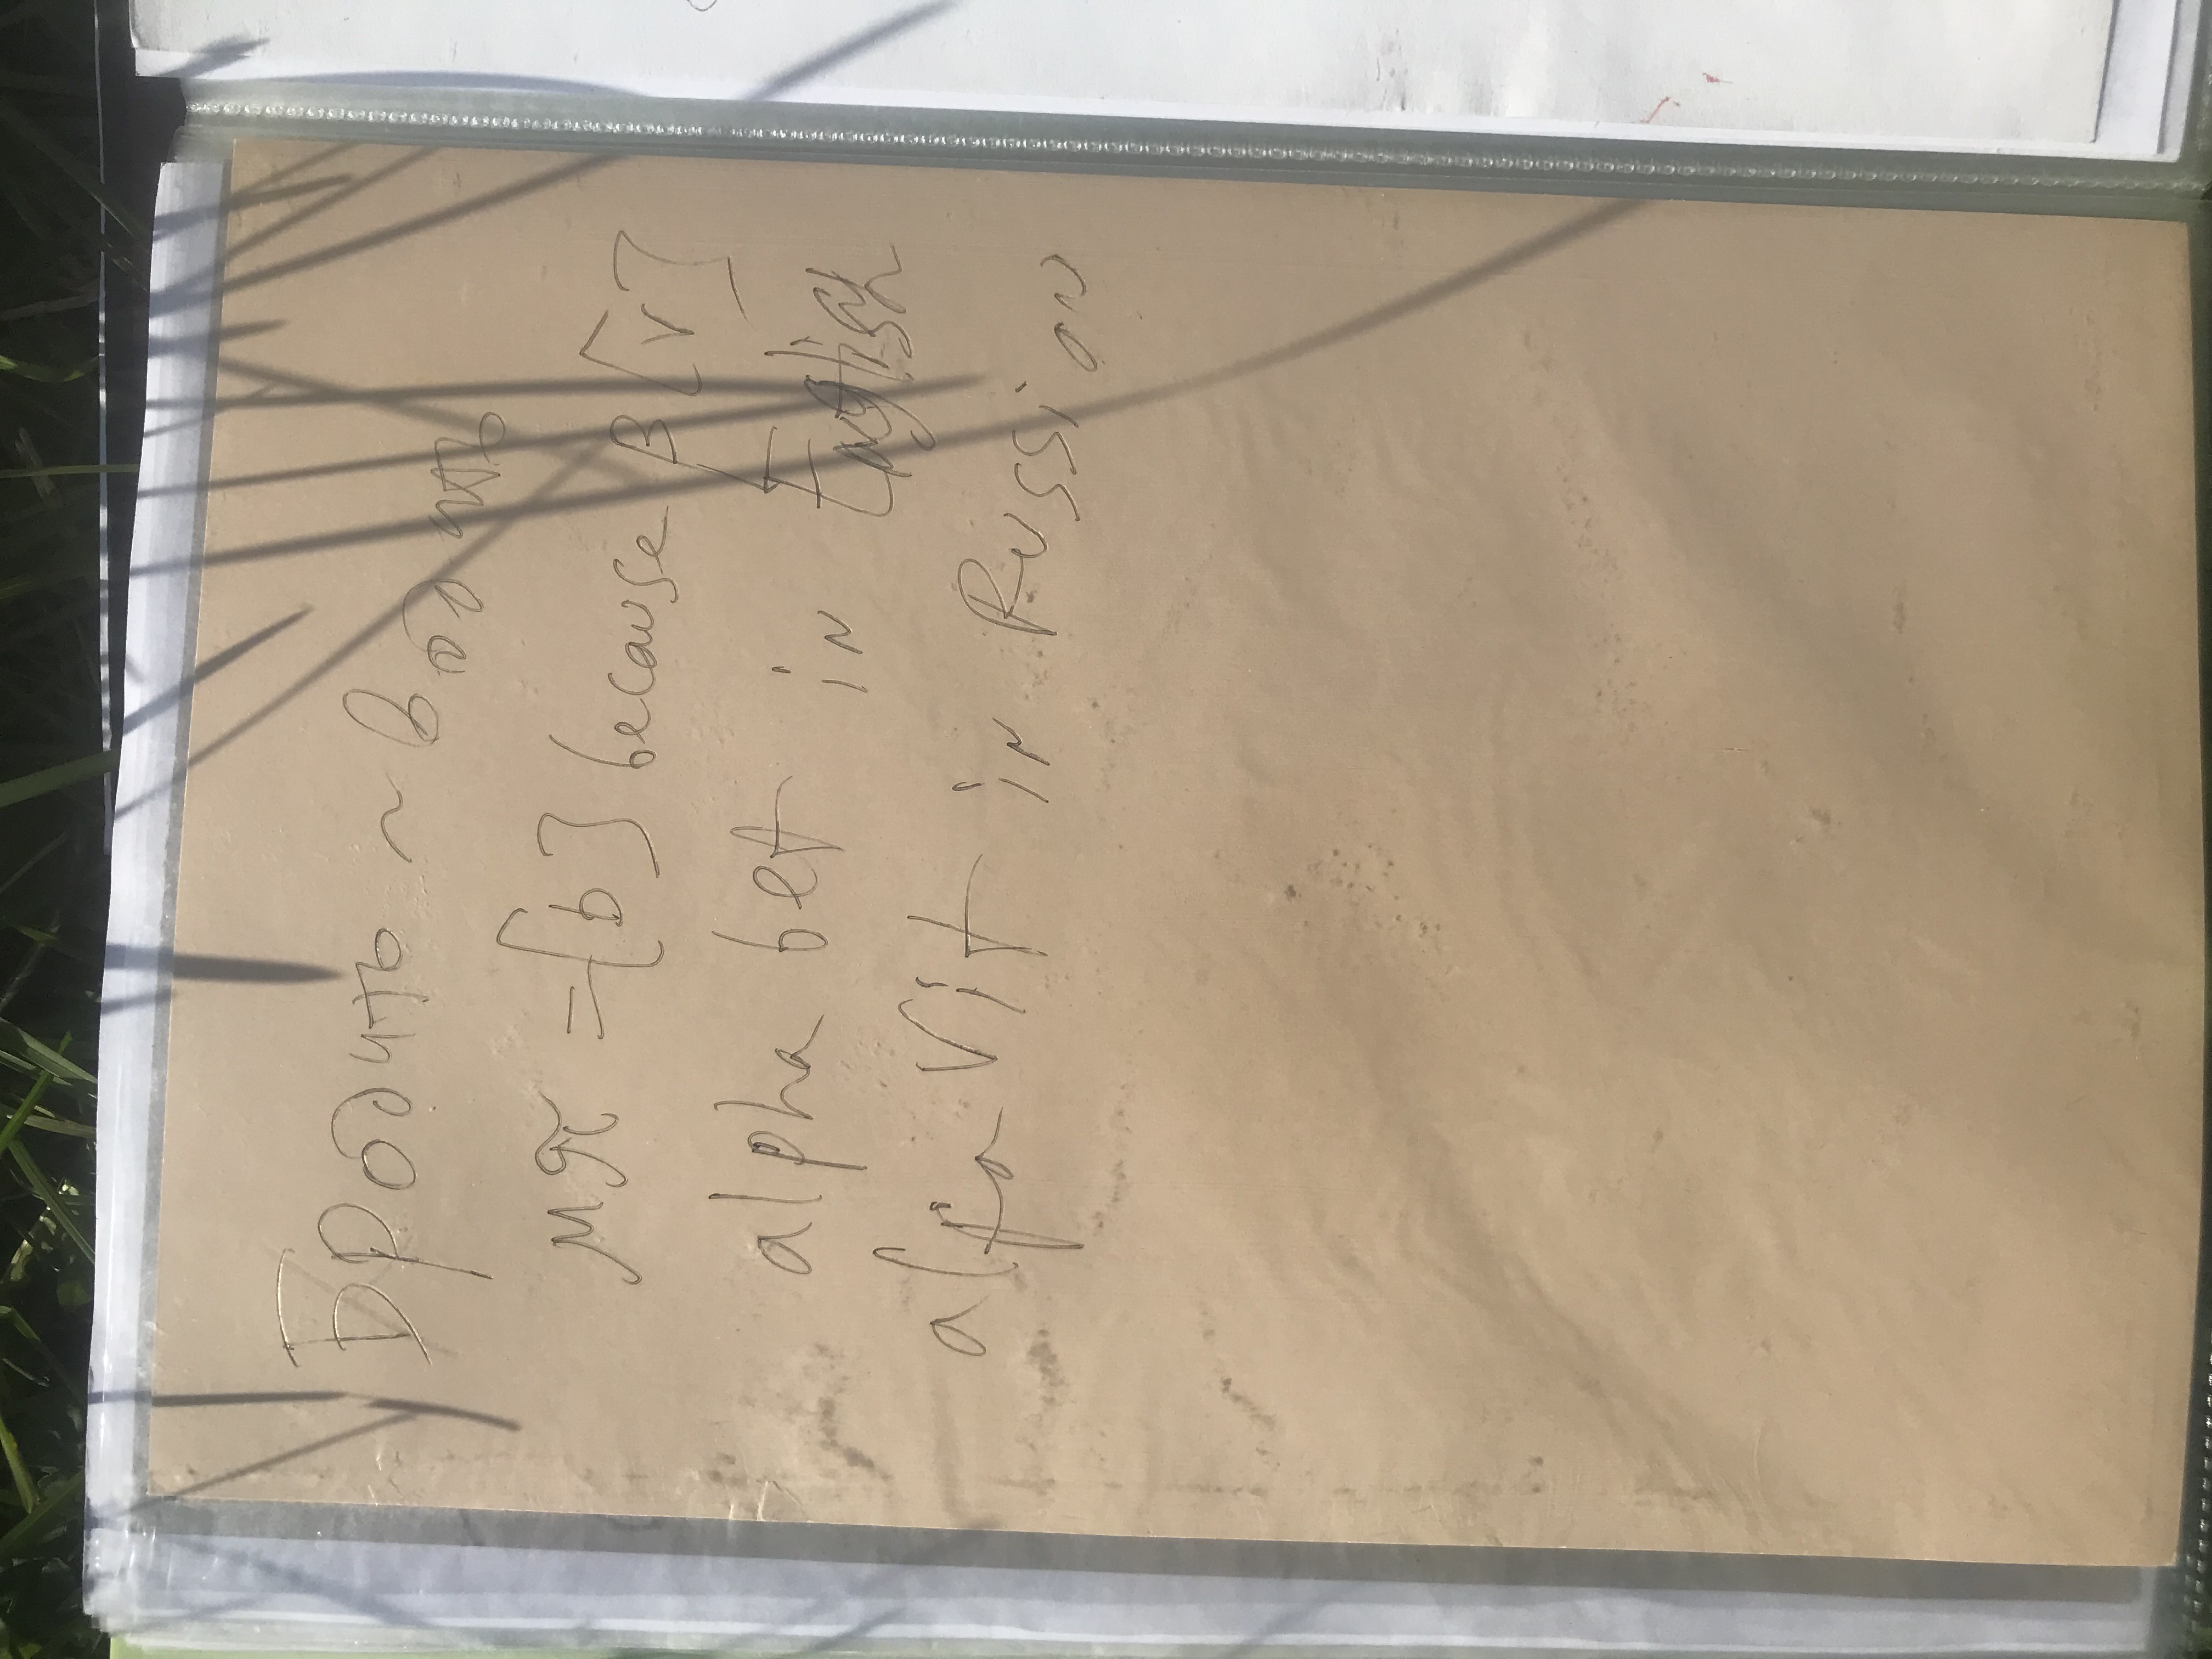 Бродить ~ Водить
μπ = [b] because β [v]
alpha bet in English
alfa vit in Russian